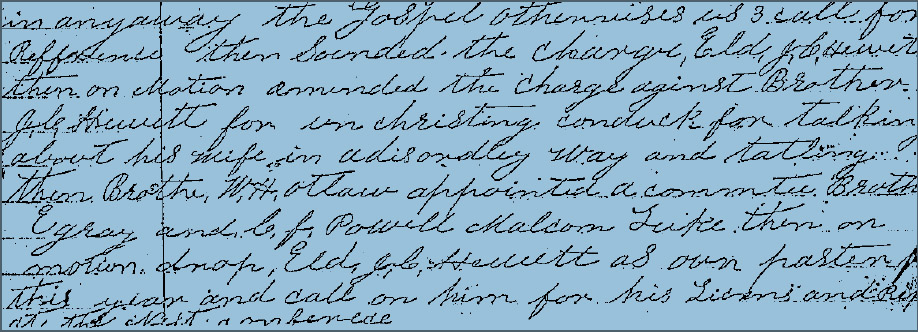 in anyaway the Gospel othernises us 3. call for
Refference then Sounded the Charge, Eld, J, C, Hewett
then on Motion amended the Charge aginst Brother
J. C. Hewett for un christing conduck for talkin
about his wife in a disordley way and tatling
then Brothr, W, H, Otlaw appointed a commtee Broth
E gray and C, f, Powell Malcom Luke then on
motion drop, Eld, J, C, Hewett as own paster
this year and call on him for his Licens and
at the Next